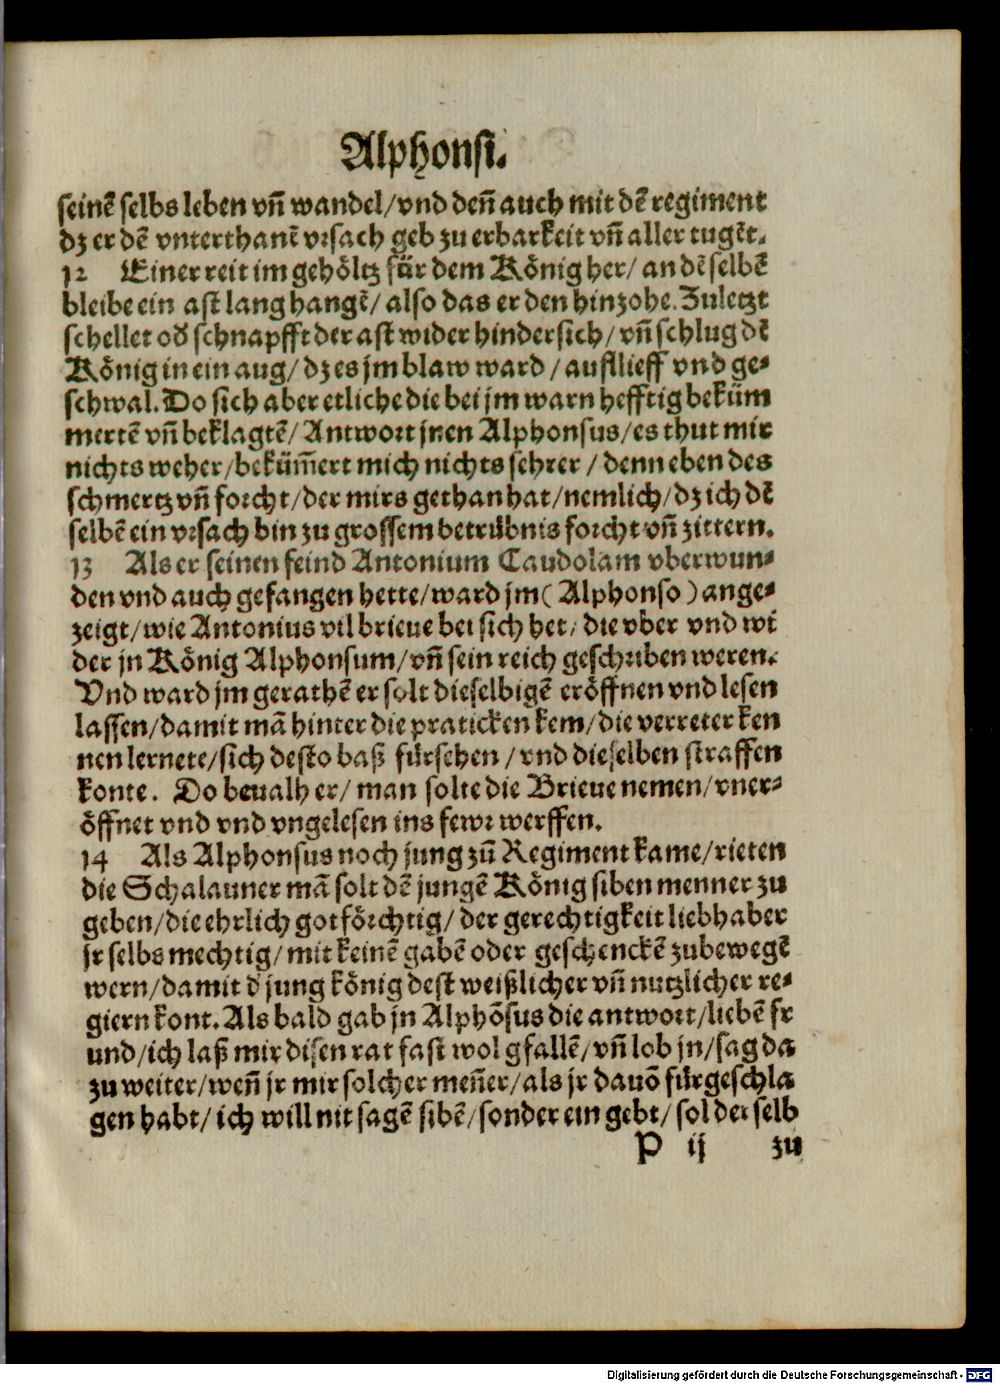 Alphonsi.
seinē selbs leben vñ wandel/vnd deñ auch mit dē regiment
dz er dē vnterthanē vrsach geb zu erbarkeit vñ aller tugēt.
12 Einer reit im gehöltz für dem König her/ an dē selbē
bleibe ein ast lang hangē/ also das er den hinzohe. Zuletzt
schellet oď schnapfft der ast wider hindersich/ vñ schlug dē
König in ein aug/ dz es jm blaw ward/ aufflieff vnd ge-
schwal. Do sich aber etliche die bei jm warn hefftig beküm
mertē vñ beklagtē/ Antwort jnen Alphonsus/ es thut mir
nichts weher/ bekūmert mich nichts sehrer/ denn eben des
schmertz vñ forcht/ der mirs gethan hat/ nemlich/ dz ich dē
selbē ein vrsach bin zu grossem betrübnis forcht vñ zittern.
13 Als er seinen feind Antonium Caudolam vberwun-
den vnd auch gefangen hette/ ward jm ( Alphonso ) ange-
zeigt/ wie Antonius vil brieue bei sich het, die vber vnd wi
der jn König Alphonsum/ vñ sein reich geschriben weren.
Vnd ward jm gerathē er solt dieselbigē eröffnen vnd lesen
lassen/ damit mā hinter die praticken kem/ die verreter ken
nen lernete/ sich desto baß fürsehen/ vnd dieselben straffen
konte. Do beualh er/ man solte die Brieue nemen/ vner-
öffnet vnd vnd vngelesen ins fewr werffen.
14 Als Alphonsus noch jung zū Regiment kame/ rieten
die Schalauner mā solt dē jungē König siben menner zu
geben/ die ehrlich gotförchtig/ der gerechtigkeit liebhaber
jr selbs mechtig/ mit keinē gabē oder geschenckē zubewegē
wern/ damit ď jung könig dest weißlicher vñ nutzlicher re-
giern kont. Als bald gab jn Alphōsus die antwort/ liebē fr
und/ ich laß mir disen rat fast wol gfallē/ vñ lob jn/ sag da
zu weiter/ weñ jr mir solcher meñer/ als jr dauō fürgeschla
gen habt/ ich will nit sagē sibē/ sonder ein gebt/ sol der selb
P ij zu
Digitalisierung gefördert durch die Deutsche Forschungsgemeinschaft - DFG